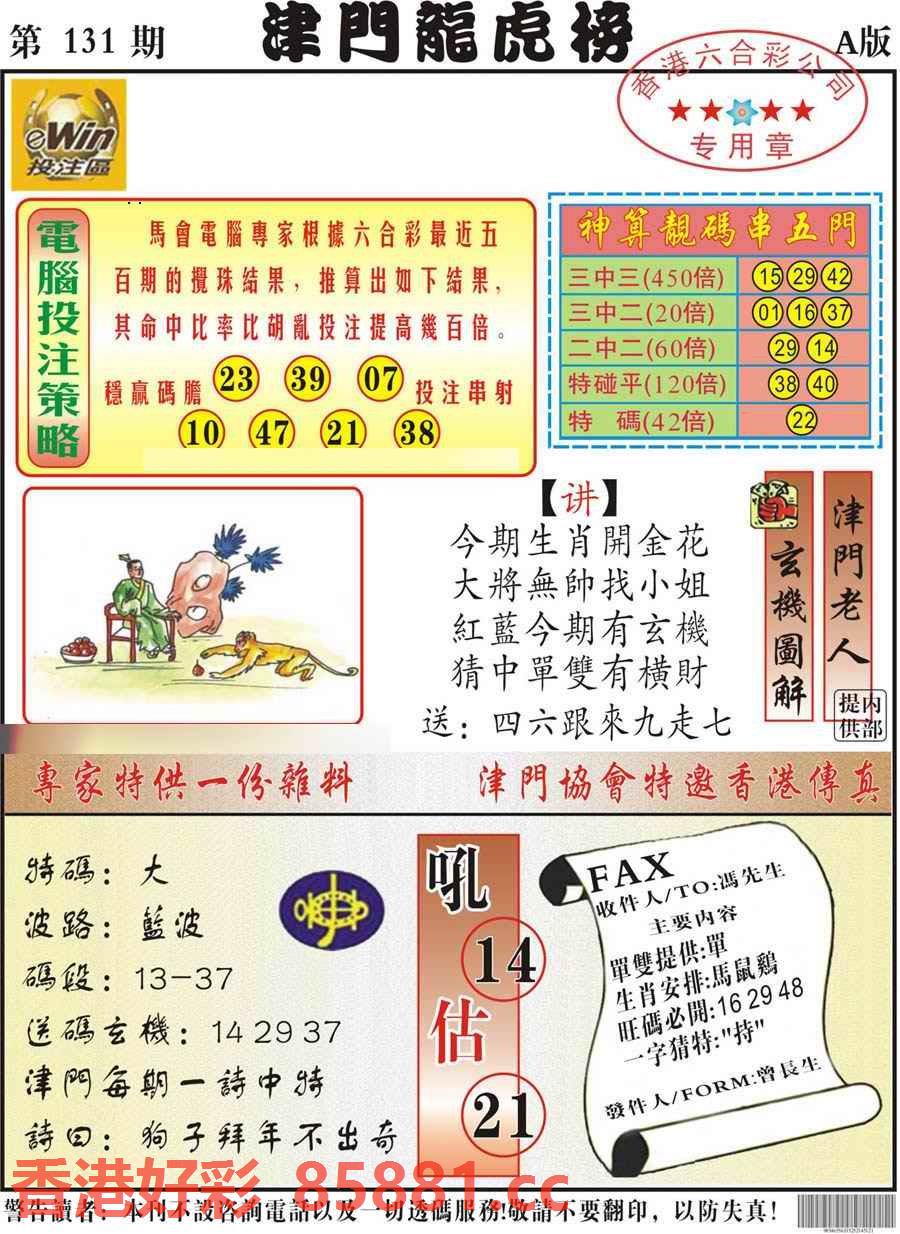 第 131 期
津門龍虎榜
A版
香港六合彩公司
★★★★
专用章
eWin
投注區
電腦投注策略
馬會電腦專家根據六合彩最近五
百期的攪珠結果，推算出如下結果，
其命中比率比胡亂投注提高幾百倍。
穩贏碼膽 23 39 07 投注串射
10 47 21 38
神算靚碼串五門
三中三(450倍) 15 29 42
三中二(20倍) 01 16 37
二中二(60倍) 29 14
特碰平(120倍) 38 40
特 碼(42倍) 22
【讲】
今期生肖開金花
大將無帥找小姐
紅藍今期有玄機
猜中單雙有橫財
送：四六跟來九走七
玄機圖解
津門老人
提供
内部
專家特供一份雜料
津門協會特邀香港傳真
特碼：大
波路：藍波
碼段：13-37
送碼玄機：14 29 37
津門每期一詩中特
詩曰：狗子拜年不出奇
吼
14
估
21
FAX
收件人/TO:馮先生
主要内容
單雙提供:單
生肖安排:馬鼠鷄
旺碼必開:16 29 48
一字猜特:"持"
發件人/FORM:曾長生
香港好彩 85881.cc
警告讀者：本刊不設咨詢電話以及一切透碼服務!敬請不要翻印，以防失真！